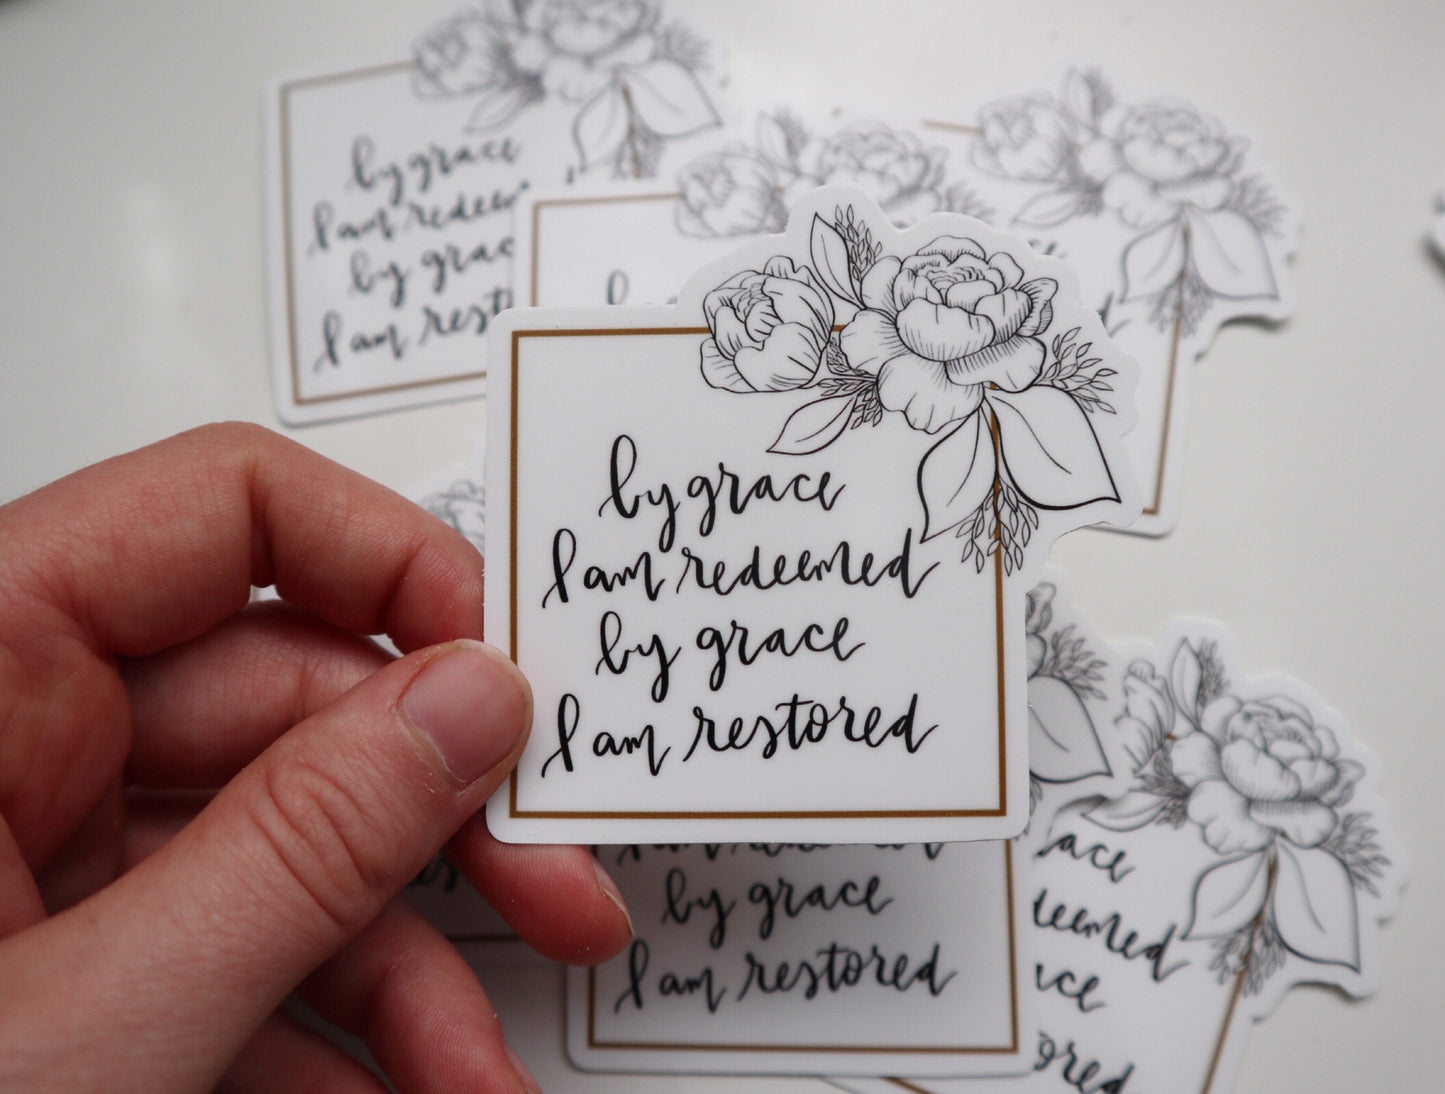 by grace
I am redeemed
by grace
I am restored
by grace
I am
by grace
I am
by grace
I am restored
redeemed
restored